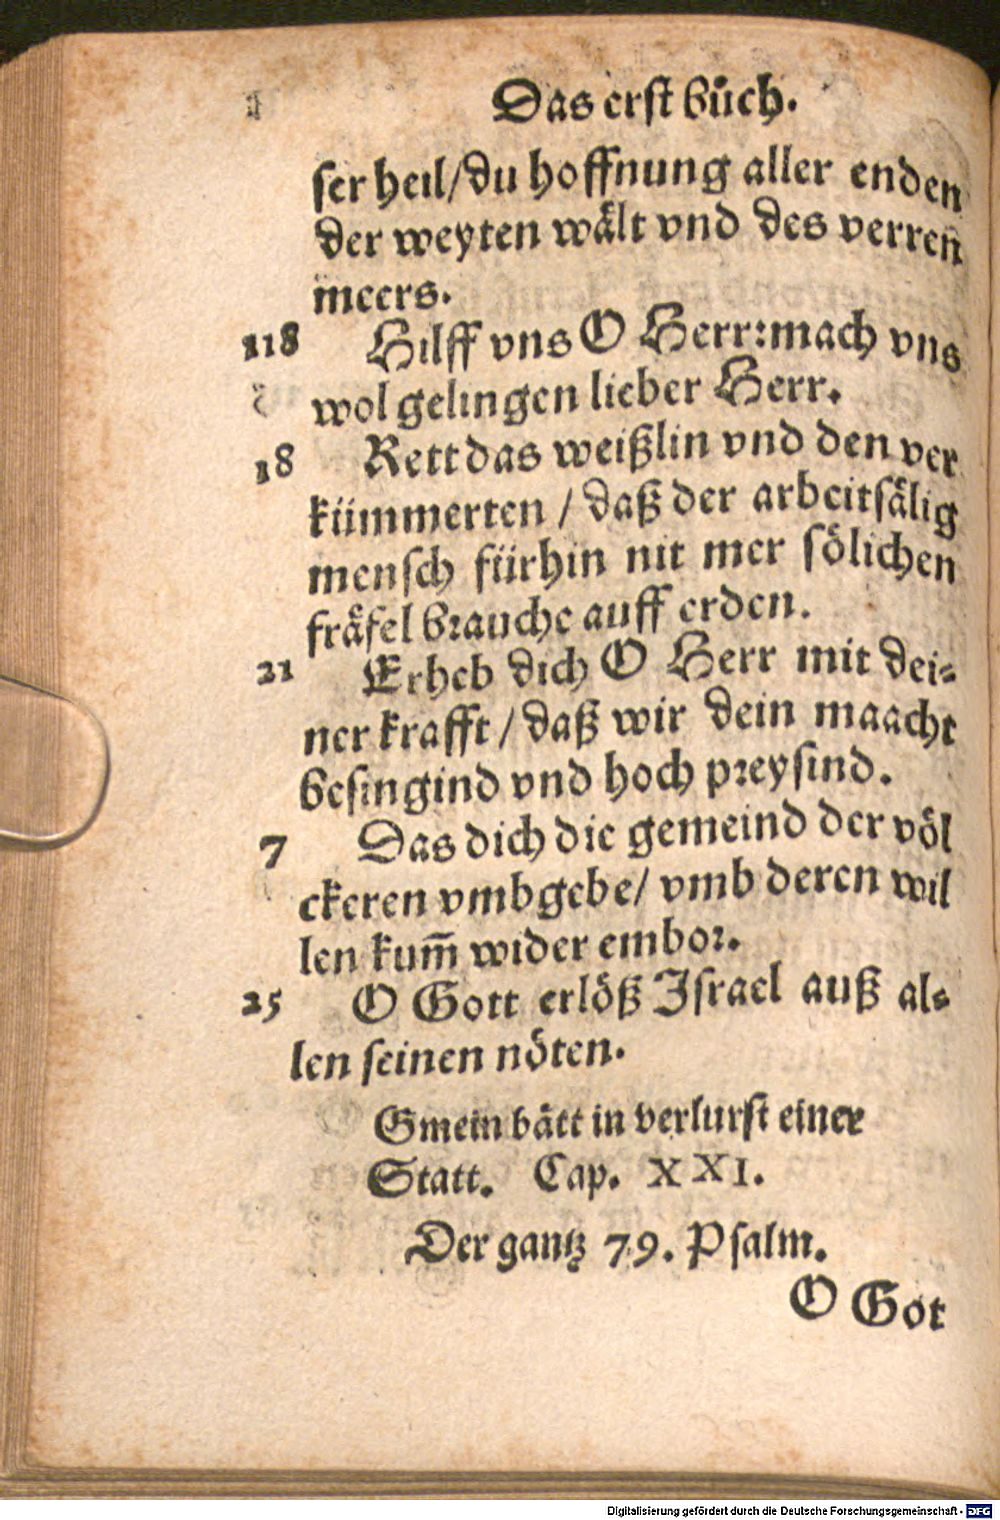 Das erst bůch.
ser heil/du hoffnung aller enden
der weyten wält vnd des verren
meers.
118 Hilff vns O Herr:mach vns
wol gelingen lieber Herr.
18 Rett das weißlin vnd den ver
kümmerten / daß der arbeitsälig
mensch fürhin nit mer sölichen
fräfel brauche auff erden.
21 Erheb dich O Herr mit dei⸗
ner krafft / daß wir dein maacht
besingind vnd hoch preysind.
7 Das dich die gemeind der völ
ckeren vmbgebe/ vmb deren wil
len kum̄ wider embor.
25 O Gott erlöß Israel auß al⸗
len seinen nöten.
Gmein bätt in verlurst einer
Statt. Cap. XXI.
Der gantz 79. Psalm.
O Got
Digitalisierung gefördert durch die Deutsche Forschungsgemeinschaft - DFG